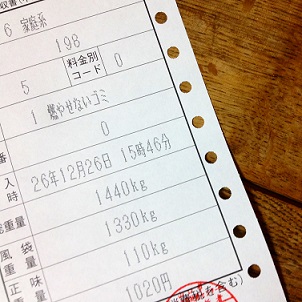 収書
6 家庭系
198
5 料金別コード 0
1 燃やせないゴミ
番 0
入時 26年12月26日 15時46分
総重量 1440kg
風袋重量 1330kg
正味 110kg
1020円
を含む)